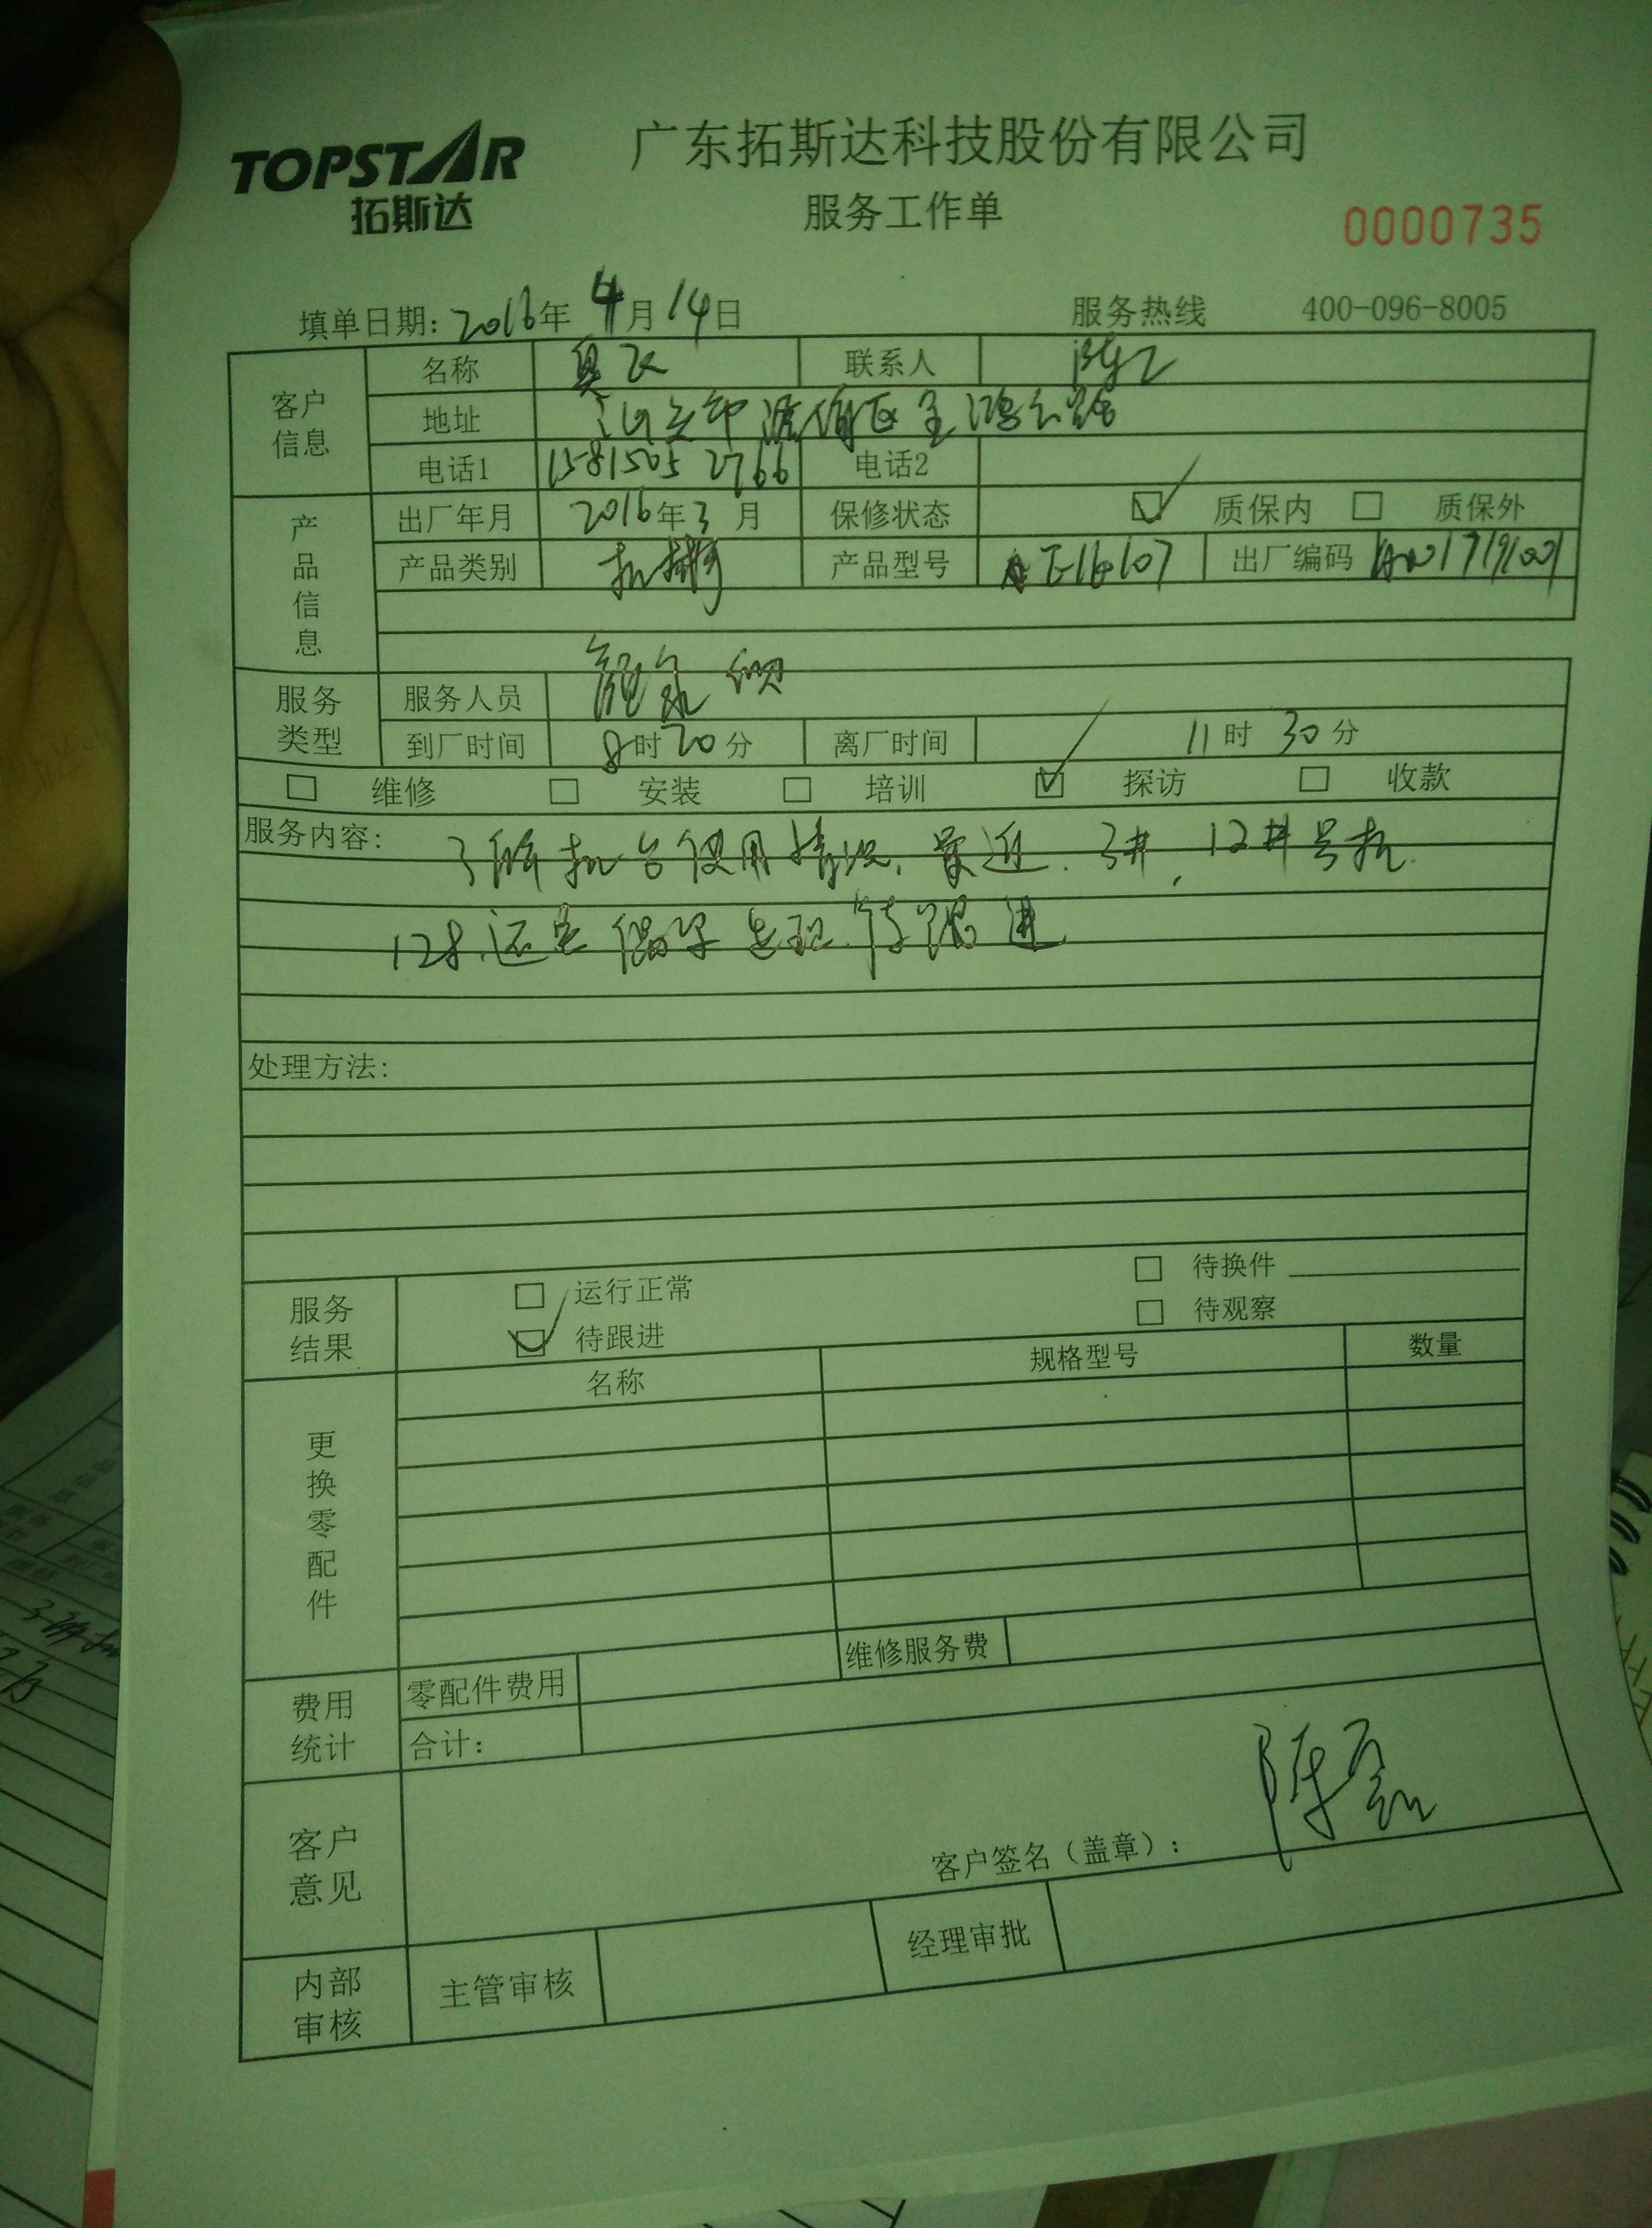 TOPSTAR
拓斯达
广东拓斯达科技股份有限公司
服务工作单
0000735
填单日期: 2016年 4月 14日 服务热线 400-096-8005
客户信息
名称 联系人
地址
电话1 15815052766 电话2
产品信息
出厂年月 2016年3月 保修状态 质保内 质保外
产品类别 产品型号 出厂编码
服务类型
服务人员
到厂时间 8时20分 离厂时间 11时30分
维修 安装 培训 探访 收款
服务内容: 了解机台使用情况, 最近. 3#, 12#号机
128, 还是偶尔出现. 待跟进
处理方法:
服务结果
运行正常 待换件
待跟进 待观察
更换零配件
名称 规格型号 数量
费用统计
零配件费用 维修服务费
合计:
客户意见
客户签名(盖章): 陈磊
内部审核
主管审核 经理审批